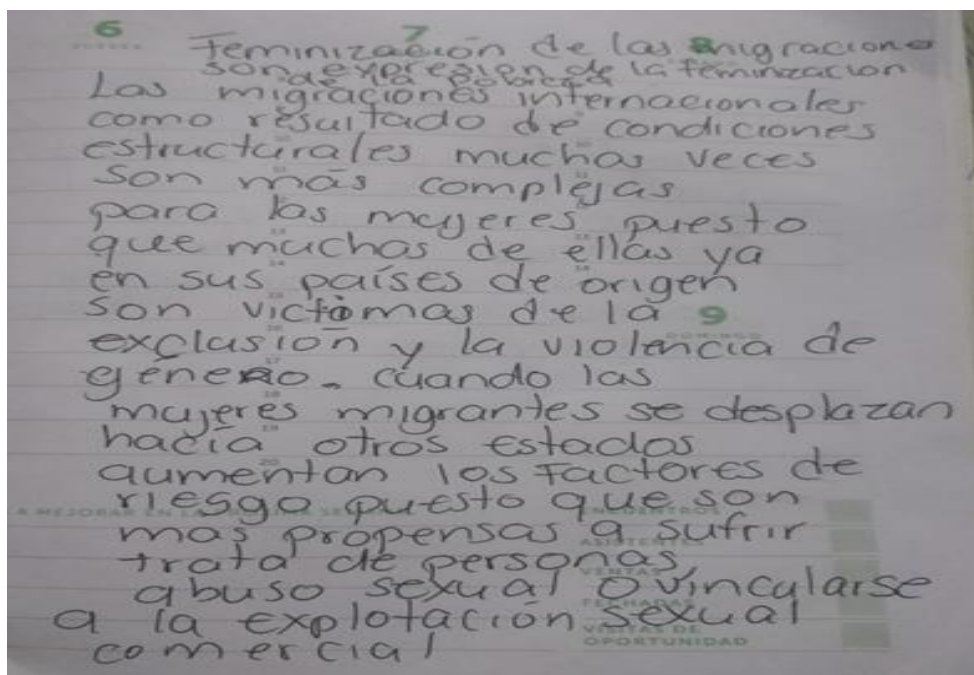 6 7 8
Feminización de las migracione
son expresión de la feminización
de la pobreza
Las migraciones internacionales
como resultado de condiciones
estructurales muchas veces
son más complejas
para las mujeres puesto
que muchas de ellas ya
en sus países de origen
son victimas de la 9
DOMINGO
exclusión y la violencia de
género. cuando las
mujeres migrantes se desplazan
hacia otros estados
aumentan los factores de
riesgo puesto que son
A MEJORAR EN LA
mas propensas a sufrir
ASISTENTES
trata de personas,
VENTAS
abuso sexual o vincularse
a la explotación sexual
VISITAS DE
OPORTUNIDAD
comercial